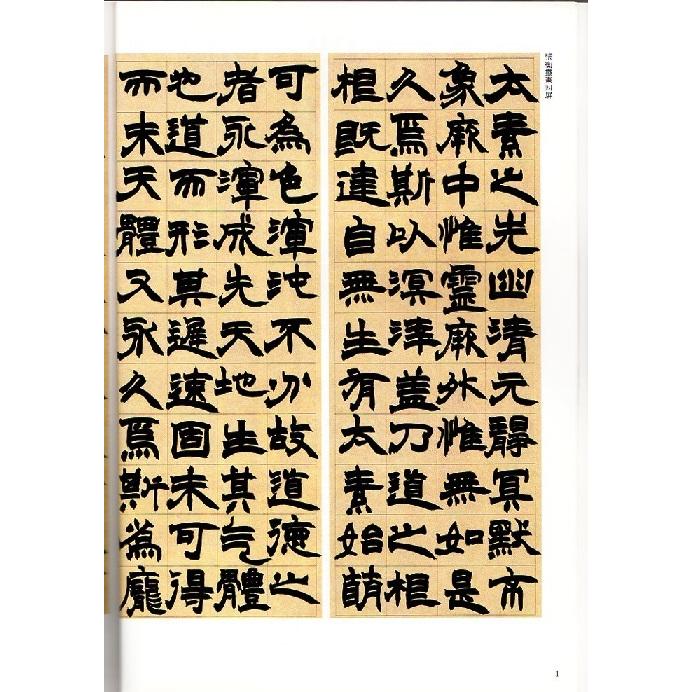 張衡靈憲四屏
太素之先幽清元靜冥默不
象厥中惟靈厥外惟無如是
久焉斯以溟涬蓋乃道之根
根既建自無生有太素始萌
可為色渾沌不分故道德之
者永渾成先天地生其气體
也道而形其遲速固未可得
而未天體又永久焉斯為龐
1